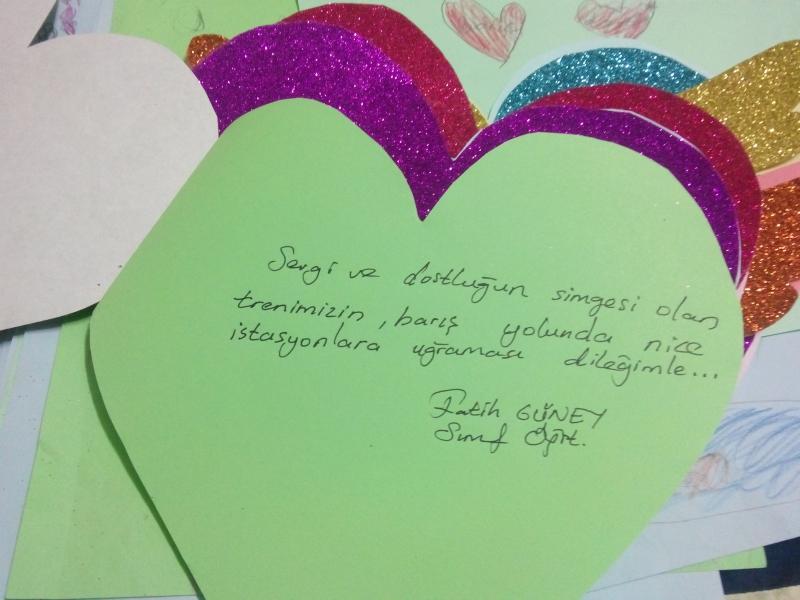 Sevgi ve dostluğun simgesi olan
trenimizin, barış yolunda nice
istasyonlara uğraması dileğimle...
Fatih GÜNEY
Sınıf Öğrt.